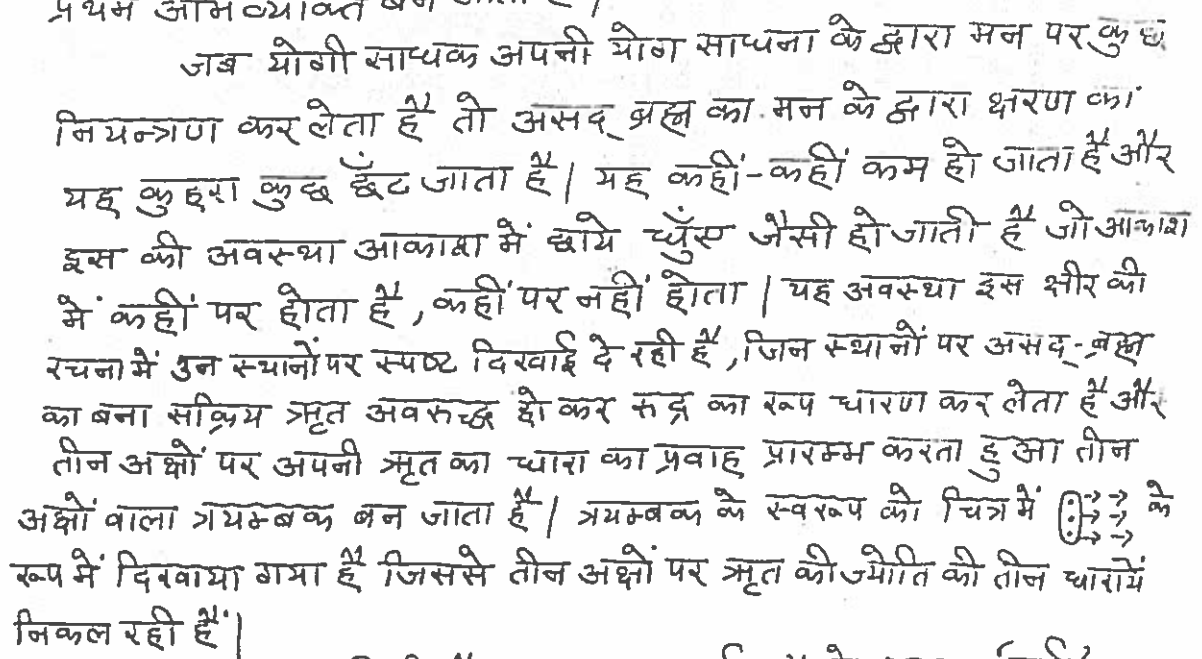 प्रथम अभिव्यक्ति बन जाता है।
जब योगी साधक अपनी योग साधना के द्वारा मन पर कुछ
नियन्त्रण कर लेता है तो असद् ब्रह्म का मन के द्वारा क्षरण का
यह कुहरा कुछ छँट जाता है। यह कहीं-कहीं कम हो जाता है और
इस की अवस्था आकाश में छाये धुँए जैसी हो जाती है जो आकाश
में कहीं पर होता है, कहीं पर नहीं होता। यह अवस्था इस क्षीर की
रचना में उन स्थानों पर स्पष्ट दिखाई दे रही है, जिन स्थानों पर असद्-ब्रह्म
का बना सक्रिय ऋत अवरुद्ध हो कर रुद्र का रूप धारण कर लेता है और
तीन अक्षों पर अपनी ऋत का धारा का प्रवाह प्रारम्भ करता हुआ तीन
अक्षों वाला त्रयम्बक बन जाता है। त्रयम्बक के स्वरूप को चित्र में के
रूप में दिखाया गया है जिससे तीन अक्षों पर ऋत की ज्योति की तीन धारायें
निकल रही हैं।